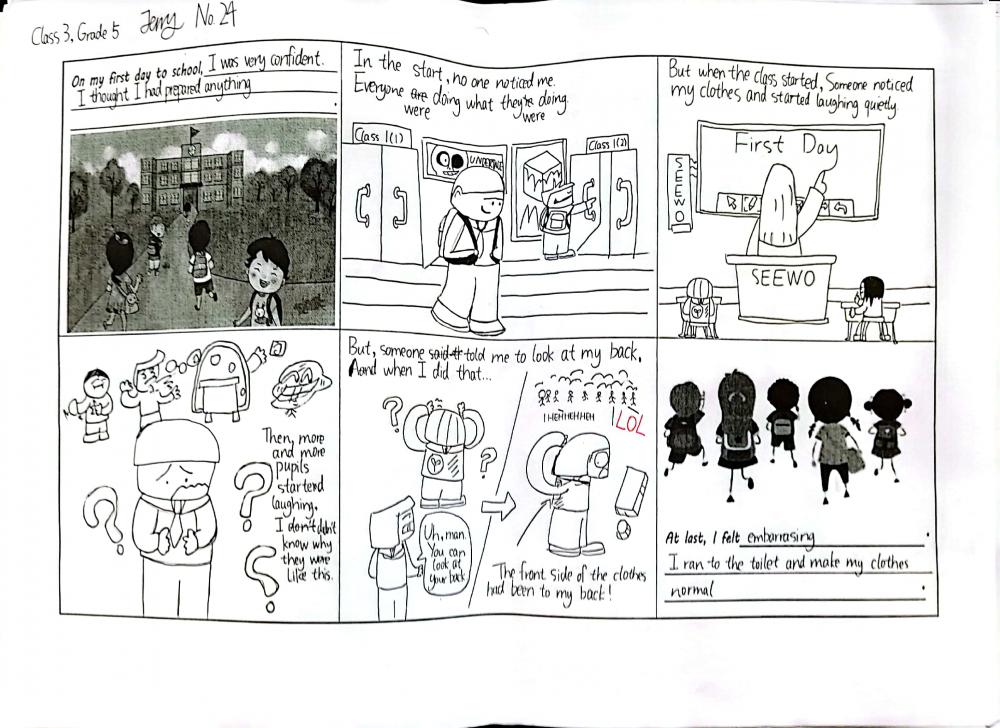 Class 3, Grade 5 Jerry No. 24
On my first day to school, I was very confident.
I thought I had prepared anything
In the start, no one noticed me.
Everyone are doing what they're doing.
were were
Class 1(1)
UNDERTALE
Class 1(2)
But when the class started, Someone noticed
my clothes and started laughing quietly.
First Day
SEEWO
SEEWO
Then, more
and more
pupils
starterd
laughing.
I don't didn't
know why
they were
like this.
But, someone said told me to look at my back,
And when I did that...
HEHHEHHEH
LOL
Uh, man.
You can
look at
your back
The front side of the clothes
had been to my back!
At last, I felt embarrasing.
I ran to the toilet and make my clothes
normal.